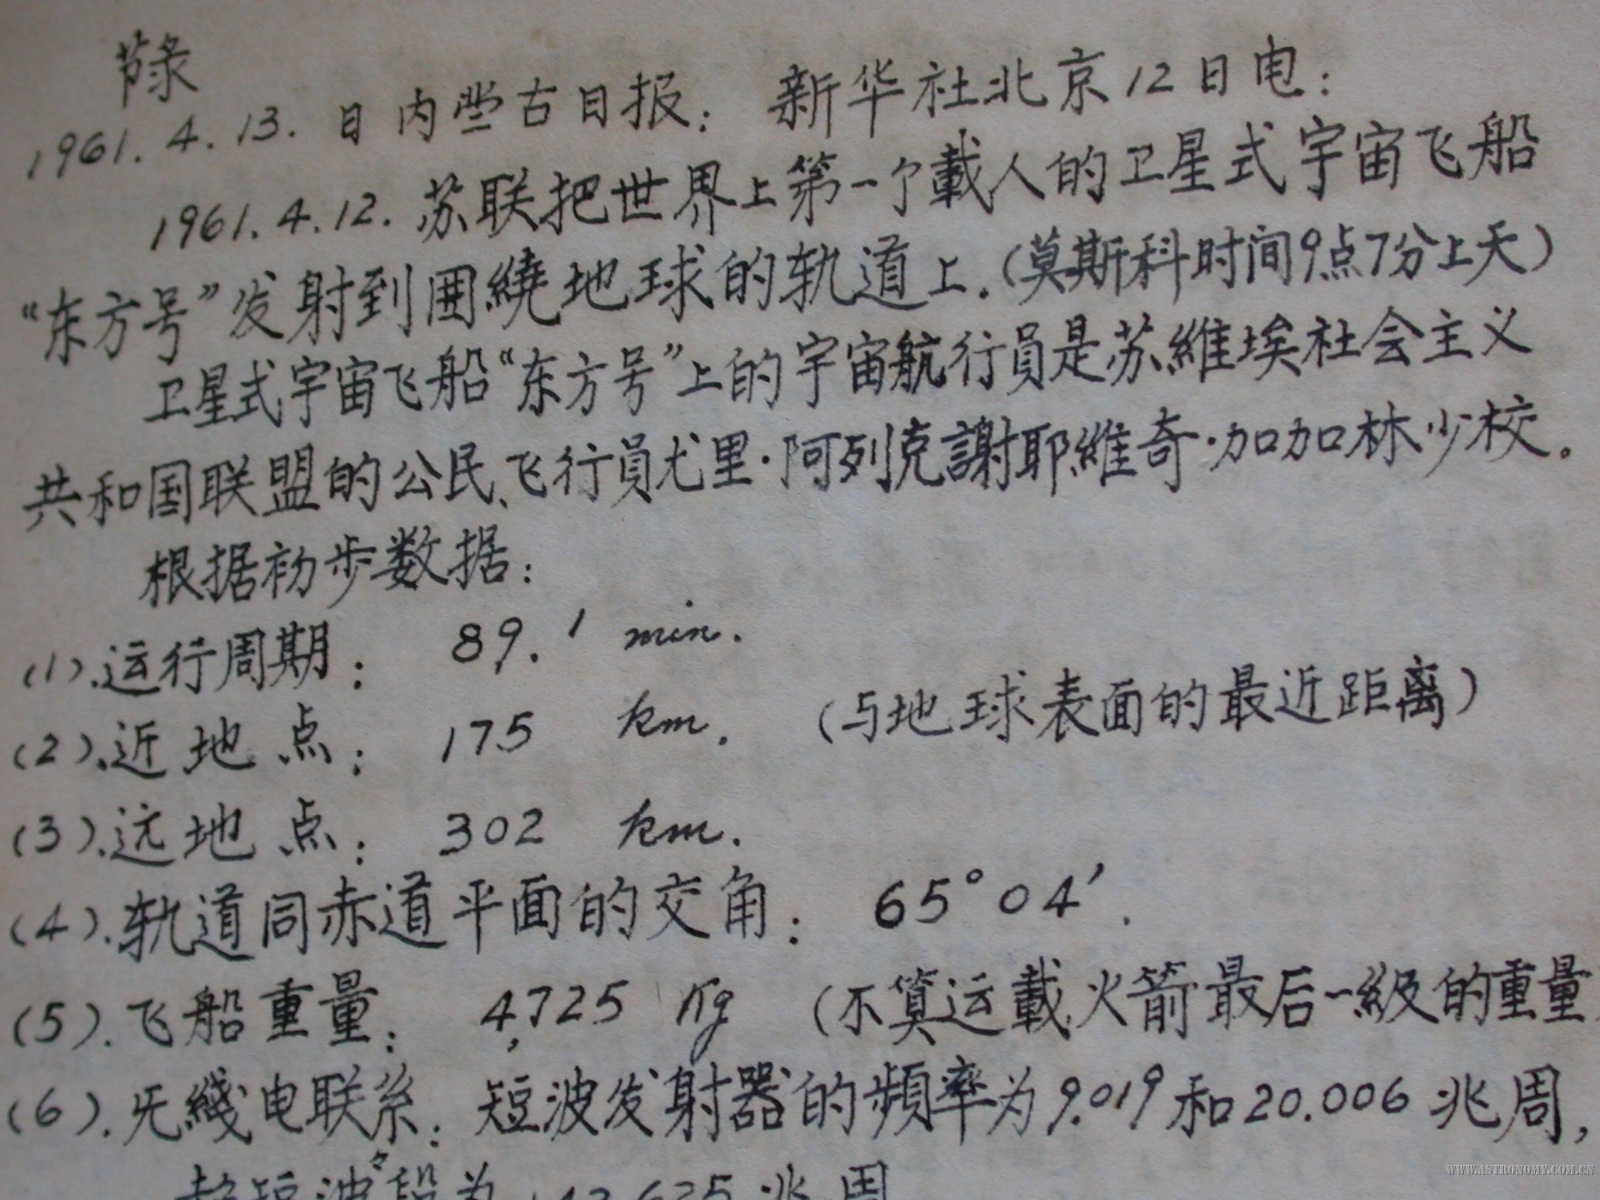 节录
1961.4.13.日内蒙古日报：新华社北京12日电：
1961.4.12.苏联把世界上第一个載人的卫星式宇宙飞船
“东方号”发射到囲繞地球的轨道上.(莫斯科时间9点7分上天)
卫星式宇宙飞船“东方号”上的宇宙航行員是苏維埃社会主义
共和国联盟的公民、飞行員尤里·阿列克謝耶維奇·加加林少校。
根据初步数据：
(1).运行周期： 89.1 min.
(2).近地点： 175 km. (与地球表面的最近距离)
(3).远地点： 302 km.
(4).轨道同赤道平面的交角： 65°04′.
(5).飞船重量： 4,725 Kg (不算运載火箭最后一級的重量
(6).无綫电联系：短波发射器的頻率为9.019和20.006兆周,
超短波段为143.625兆周
WWW.ASTRONOMY.COM.CN